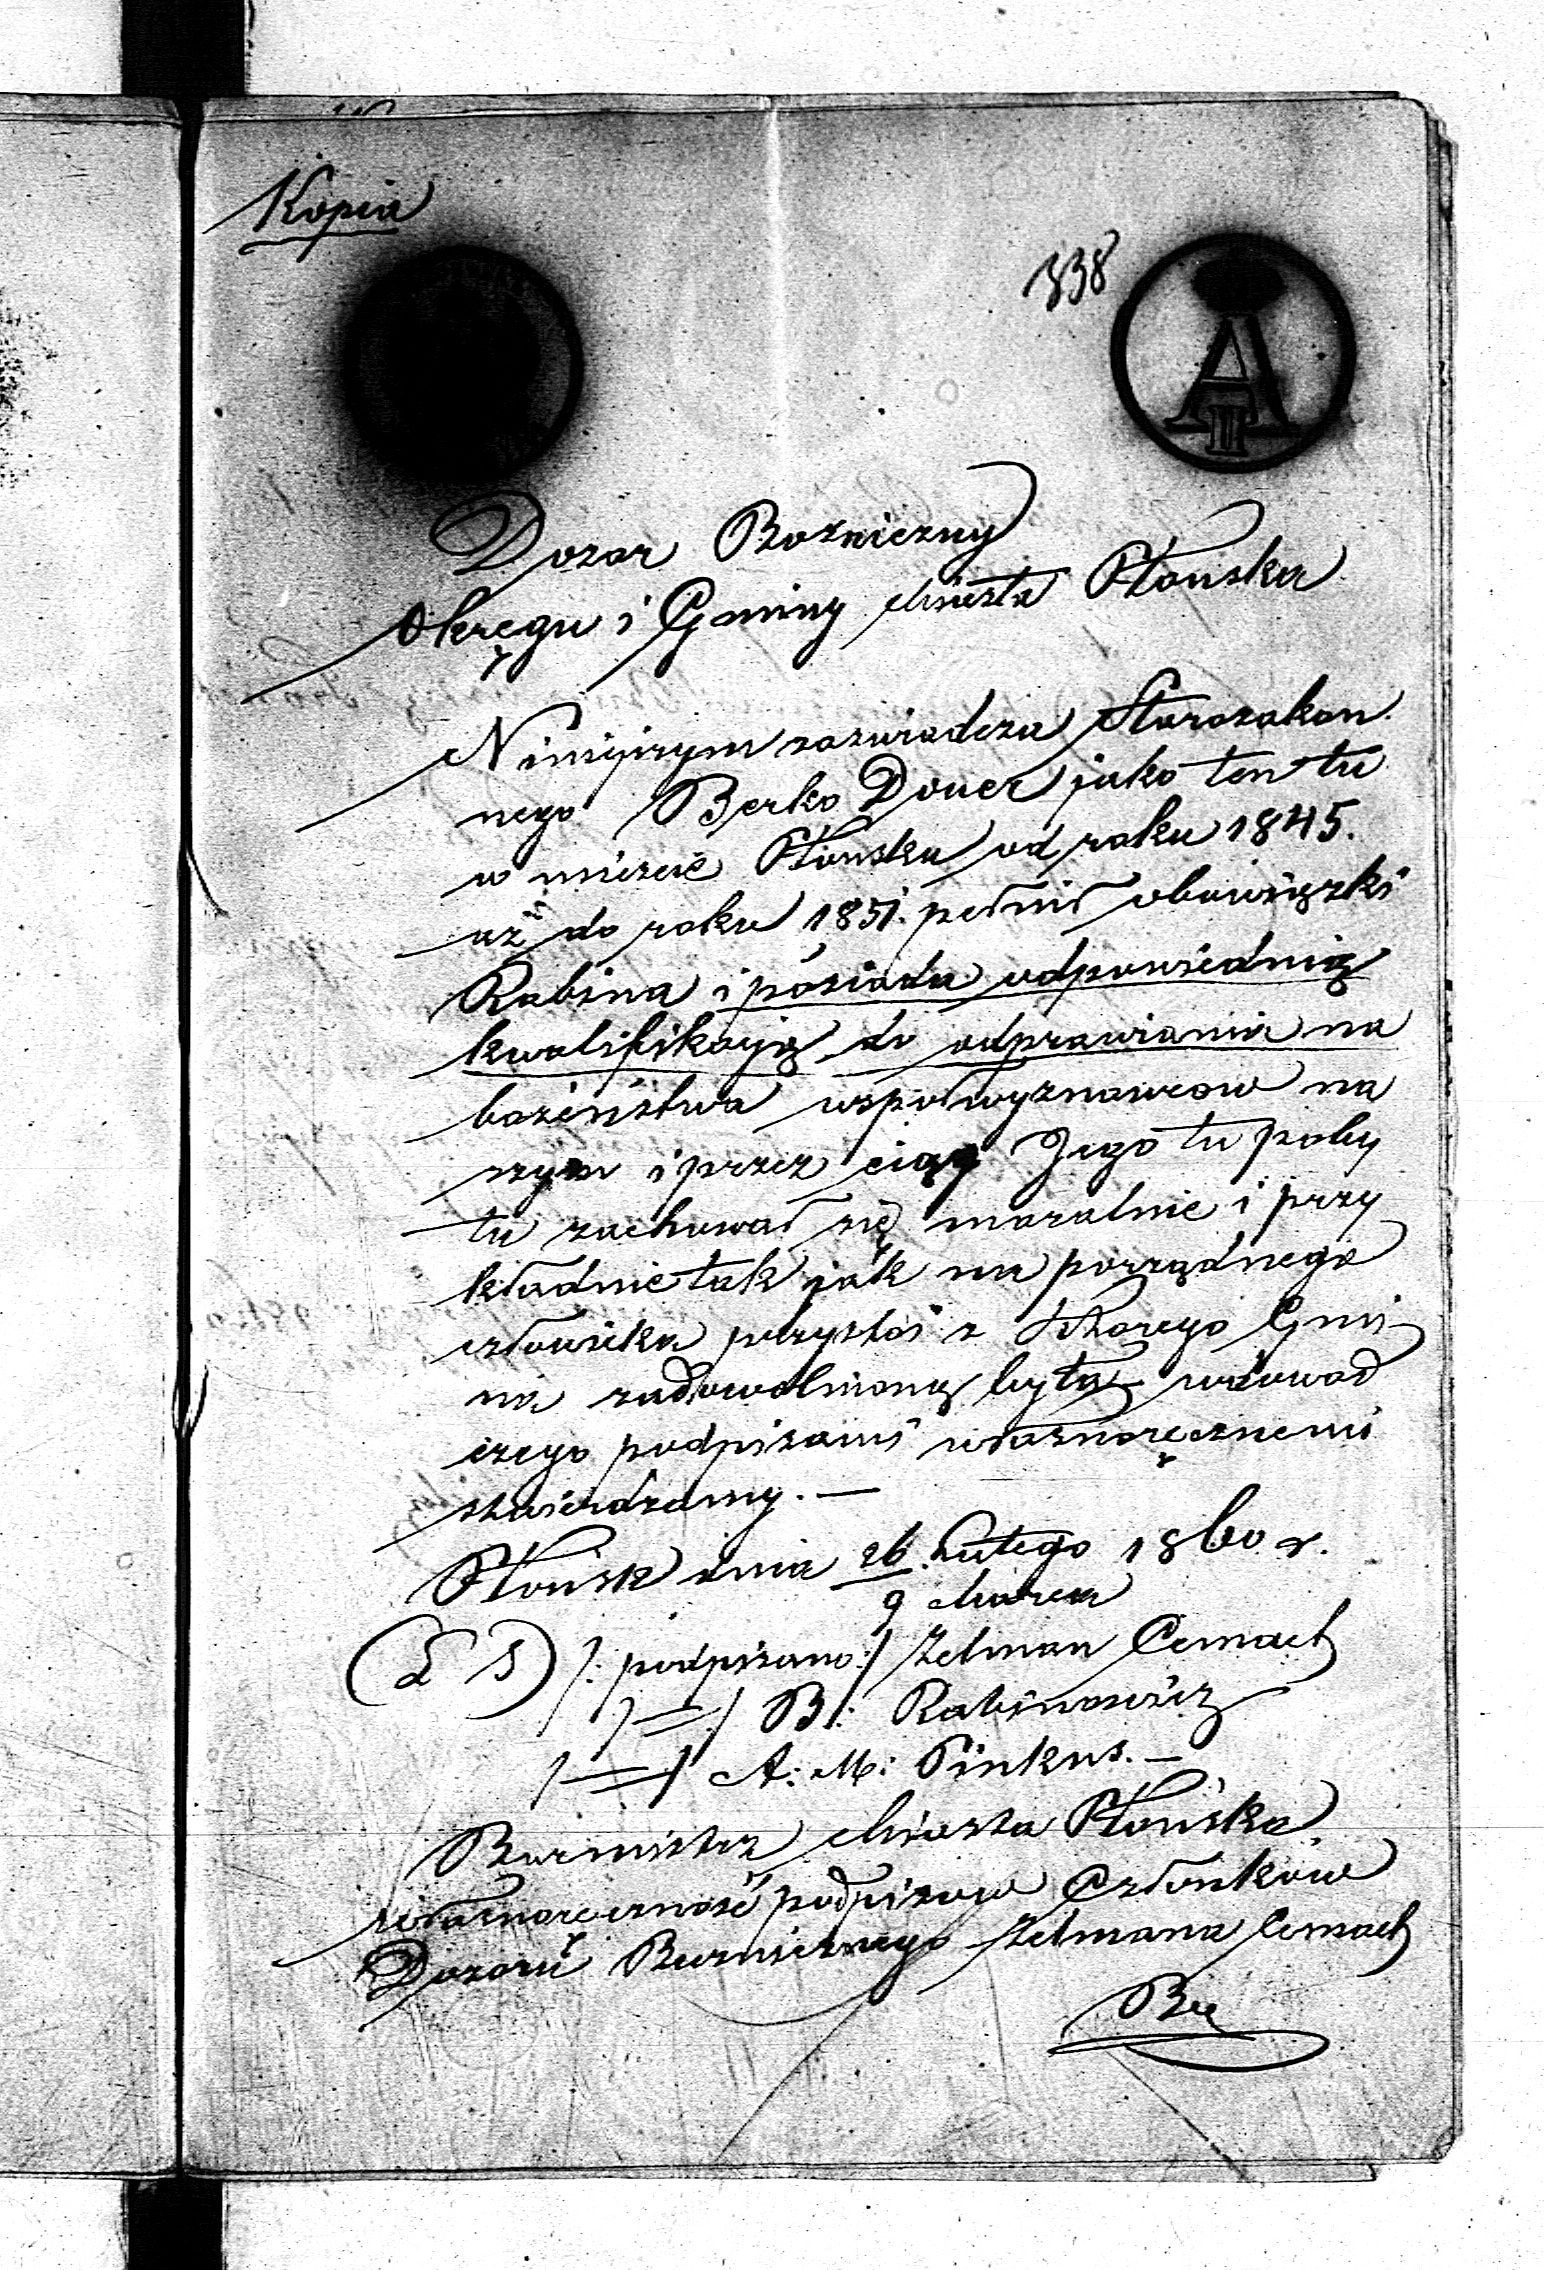 Kopia
338
A
II
Dozor Boźniczny
Okręgu i Gminy Miasta Płońska
Niniejszym zaświadcza Starozakon
nego Berko Doner jako ten tu
w mieście Płońsku od roku 1845.
aż do roku 1851. pełnił obowiązki
Rabina i posiada odpowiednią
kwalifikacją do odprawiania na
bożeństwa współwyznawców na
szym i przez ciąg Jego tu poby
tu zachował się moralnie i przy
kładnie tak jak na porządnego
człowieka przystoi z którego Gmi
na zadowolnioną była w dowód
czego podpisami własnoręcznemi
stwierdzamy. —
Płońsk dnia 26 Lutego 1860 r.
9 Marca
(L S) /: podpisano :/ Zelman Cemach
/ = / B: Rabinowicz
/ = / A: M: Pinkus. —
Burmistrz Miasta Płońska
własnoręczność podpisów Członków
Dozoru Bużnicznego Zelmana Cemach